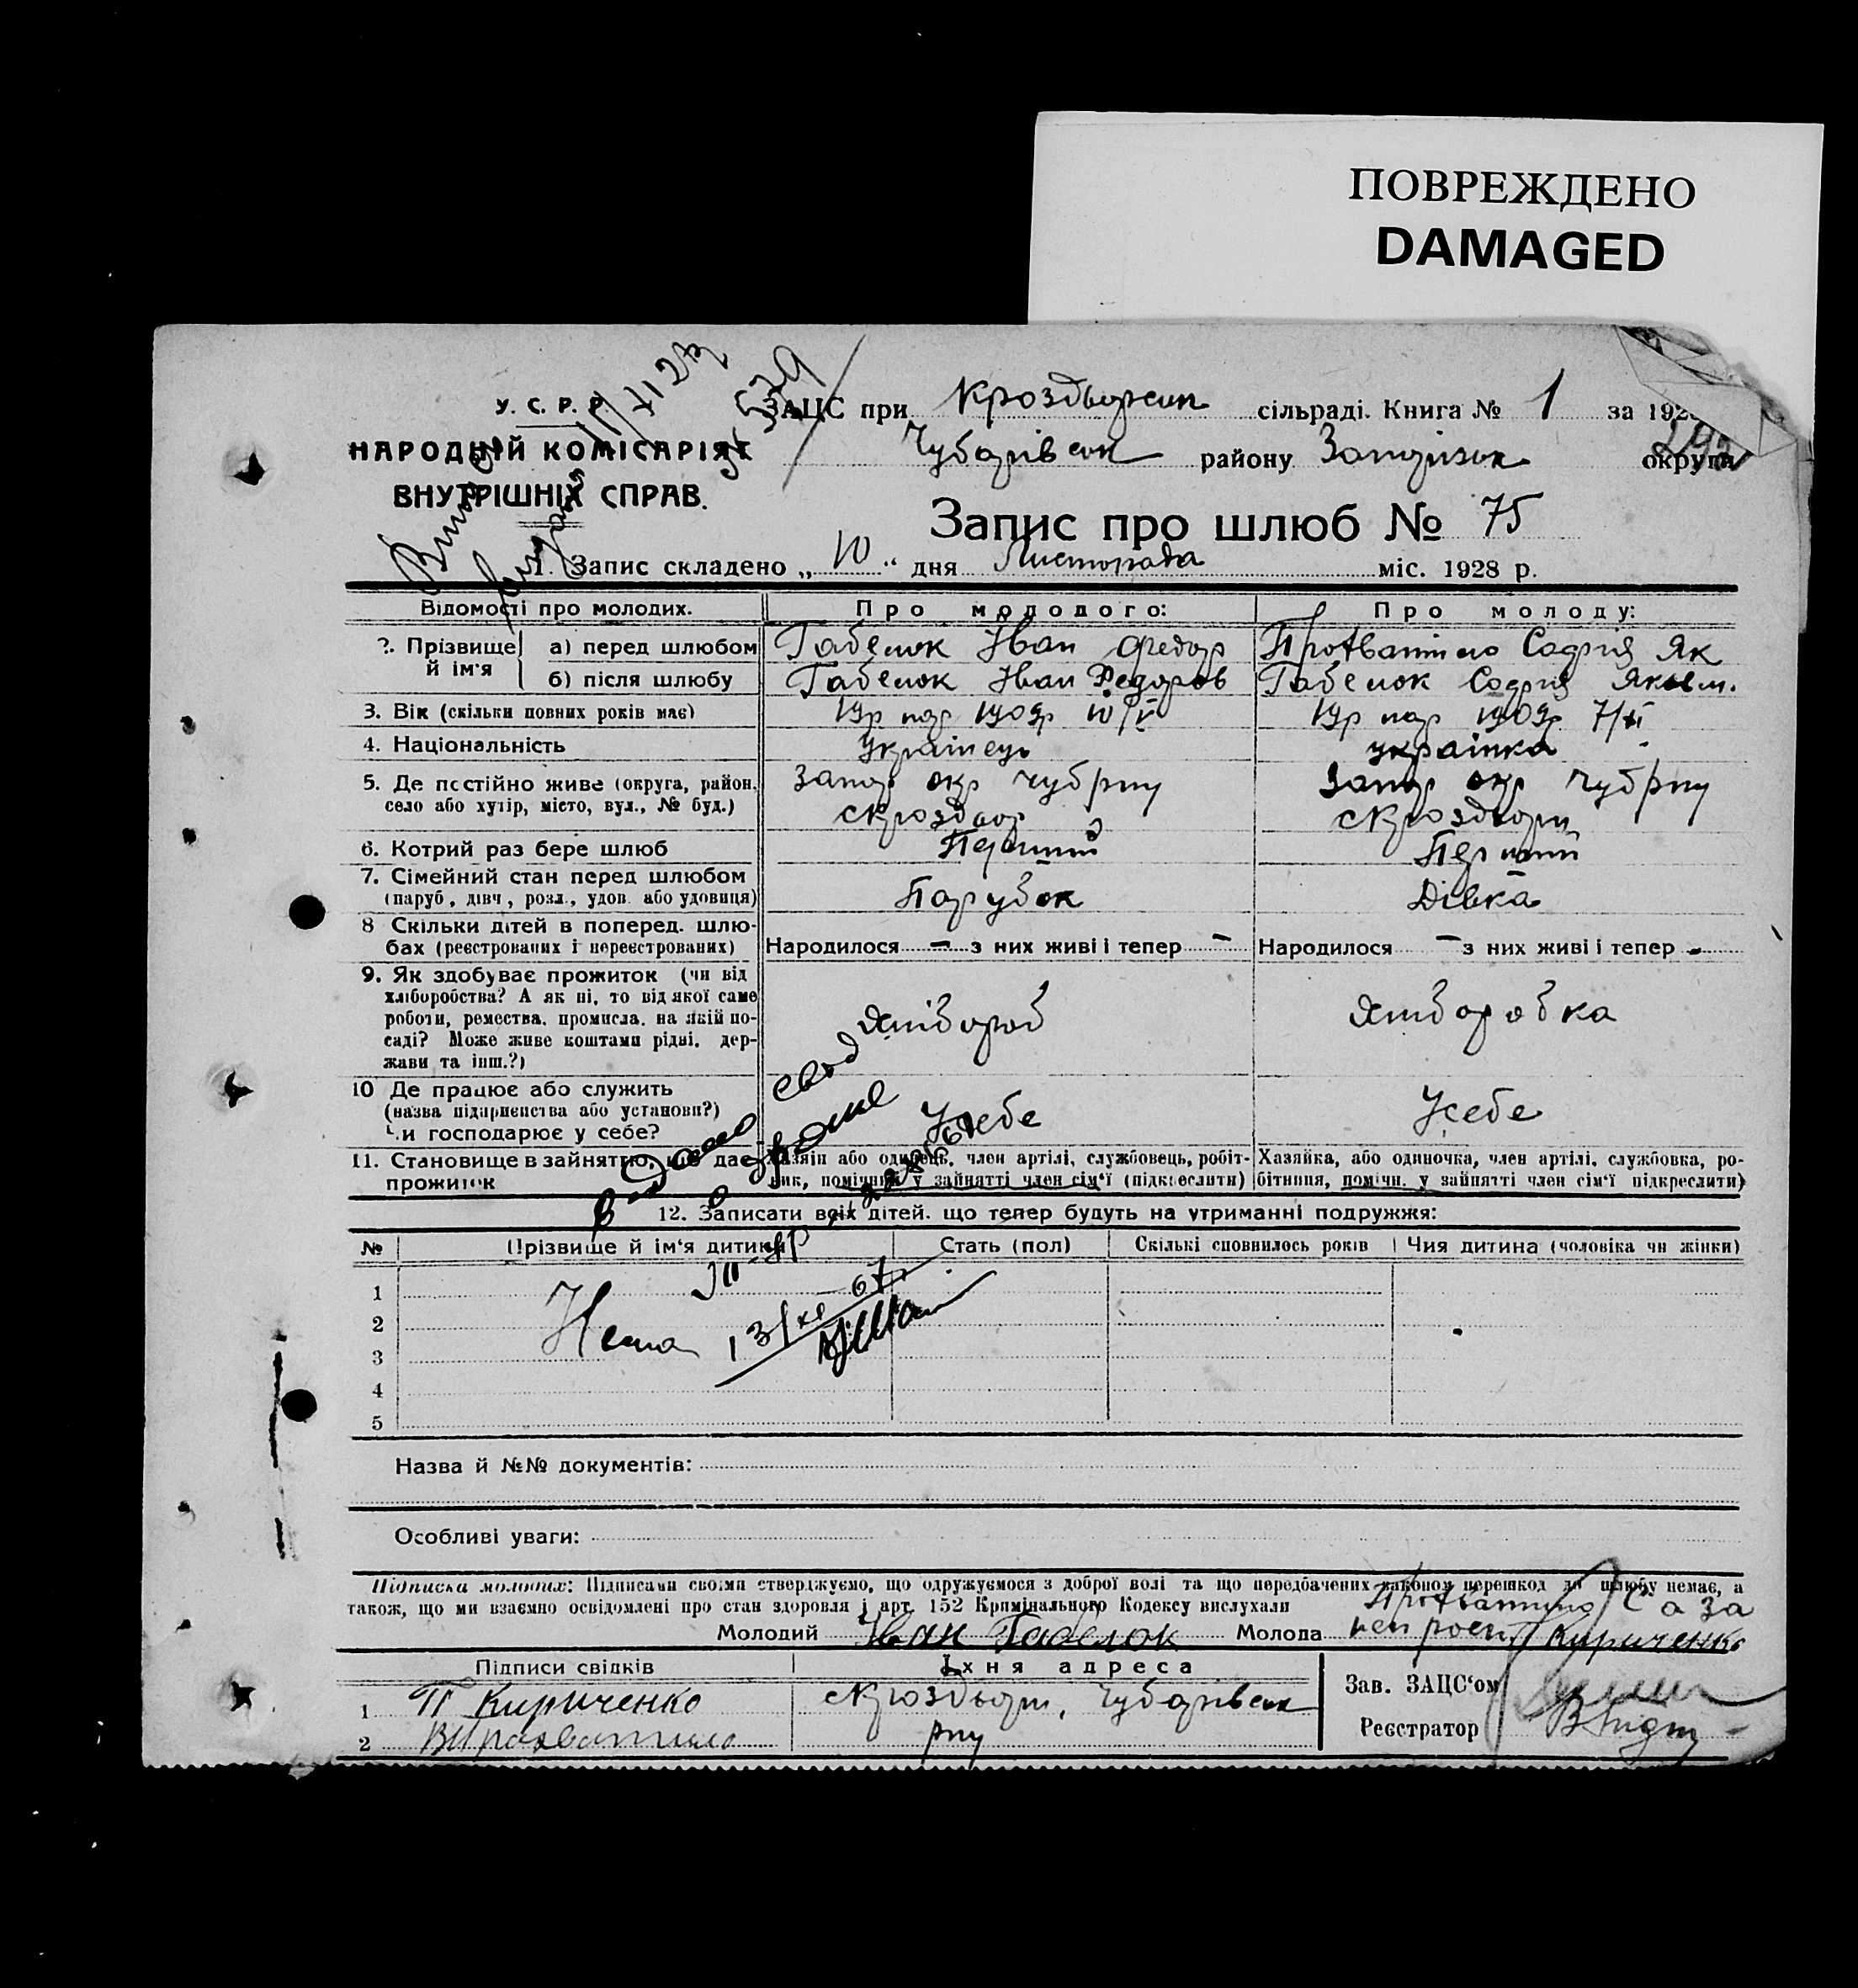 ПОВРЕЖДЕНО
DAMAGED
У. С. Р. Р.
НАРОДНІЙ КОМІСАРІЯТ
ВНУТРІШНІХ СПРАВ.
ЗАЦС при Кроздворськ сільраді. Книга № 1 за 192
Чубарівськ району Запоріжж округи
Запис про шлюб № 75
1. Запис складено „ 10 “ дня Листопада міс. 1928 р.
Відомості про молодих. Про молодого: Про молоду:
2. Прізвище й ім'я а) перед шлюбом Габелок Іван Федор Софія Як
б) після шлюбу Габелок Іван Федоров Габелок Софія Яким.
3. Вік (скільки повних років має) 19р нар 1909р 10/V 19р нар 1909р
4. Національність Українець українка
5. Де постійно живе (округа, район, Запор окр Чуб р-ну Запор окр Чуб р-ну
село або хутір, місто, вул., № буд.)
6. Котрий раз бере шлюб Перший Перший
7. Сімейний стан перед шлюбом
(паруб., дівч., розл., удов. або удовиця) Парубок Дівка
8 Скільки дітей в поперед. шлю-
бах (реєстрованих і нереєстрованих) Народилося – з них живі і тепер – Народилося – з них живі і тепер –
9. Як здобуває прожиток (чи від
хліборобства? А як ні, то від якої саме
роботи, ремества, промисла, на якій по- Хлібороб Хлиборобка
саді? Може живе коштами рідні, дер-
жави та інш.?)
10 Де працює або служить
(назва підприємства або установи?) У себе У себе
Чи господарює у себе?
11. Становище в зайняттю, що дає Хазяїн або одинець, член артілі, службовець, робіт- Хазяйка, або одиночка, член артілі, службовка, ро-
прожиток ник, помічник у зайнятті член сім'ї (підкреслити) бітниця, помічн. у зайнятті член сім'ї підкреслити)
12. Записати всіх дітей, що тепер будуть на утриманні подружжя:
№ Прізвище й ім'я дитини Стать (пол) Скількі сповнилось років Чия дитина (чоловіка чи жінки)
1
2 Нема
3
4
5
Назва й №№ документів:
Особливі уваги:
Підписка молодих: Підписами своїми стверджуємо, що одружуємося з доброї волі та що передбачених законом перешкод до шлюбу немає, а
також, що ми взаємно освідомлені про стан здоровля і арт. 152 Кримінального Кодексу вислухали
Молодий Іван Габелок Молода Кириченко
Підписи свідків Їхня адреса Зав. ЗАЦС'ом
1 П Кириченко Чубарівськ
2 р-ну Реєстратор